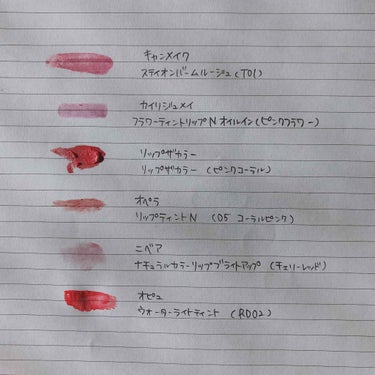 キャンメイク
ステイオンバームルージュ(T01)
カイリジュメイ
フラワーティントリップN オイルイン(ピンクフラワー)
リップザカラー
リップザカラー (ピンクコーラル)
オペラ
リップティントN (05 コーラルピンク)
ニベア
ナチュラルカラーリップブライトアップ (チェリーレッド)
オピュ
ウォーターライトティント (RD02)